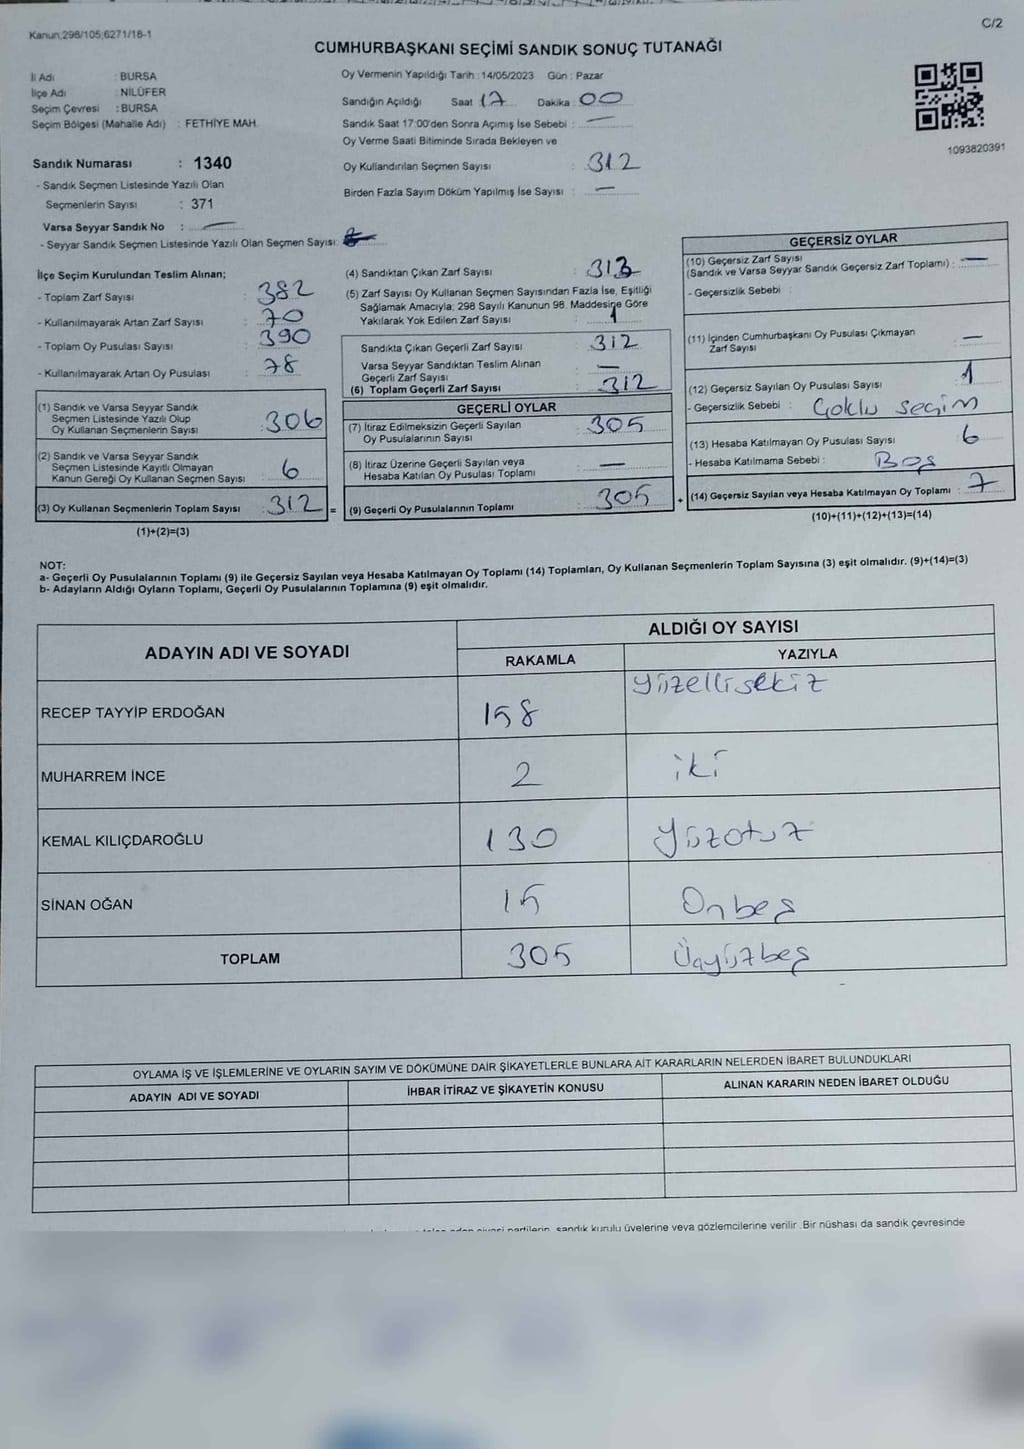 C/2
Kanun,298/105;6271/18-1
CUMHURBAŞKANI SEÇİMİ SANDIK SONUÇ TUTANAĞI
İl Adı : BURSA
İlçe Adı : NİLÜFER
Seçim Çevresi : BURSA
Seçim Bölgesi (Mahalle Adı) : FETHİYE MAH.
Sandık Numarası : 1340
- Sandık Seçmen Listesinde Yazılı Olan
Seçmenlerin Sayısı : 371
Varsa Seyyar Sandık No : —
- Seyyar Sandık Seçmen Listesinde Yazılı Olan Seçmen Sayısı:
Oy Vermenin Yapıldığı Tarih : 14/05/2023 Gün : Pazar
Sandığın Açıldığı Saat 17 Dakika : 00
Sandık Saat 17:00'den Sonra Açımış İse Sebebi : —
Oy Verme Saati Bitiminde Sırada Bekleyen ve
Oy Kullandırılan Seçmen Sayısı : 312
Birden Fazla Sayım Döküm Yapılmış İse Sayısı : —
1093820391
İlçe Seçim Kurulundan Teslim Alınan;
- Toplam Zarf Sayısı : 382
- Kullanılmayarak Artan Zarf Sayısı : 70
- Toplam Oy Pusulası Sayısı : 390
- Kullanılmayarak Artan Oy Pusulası : 78
(1) Sandık ve Varsa Seyyar Sandık
Seçmen Listesinde Yazılı Olup
Oy Kullanan Seçmenlerin Sayısı : 306
(2) Sandık ve Varsa Seyyar Sandık
Seçmen Listesinde Kayıtlı Olmayan
Kanun Gereği Oy Kullanan Seçmen Sayısı : 6
(3) Oy Kullanan Seçmenlerin Toplam Sayısı : 312 =
(1)+(2)=(3)
(4) Sandıktan Çıkan Zarf Sayısı : 313
(5) Zarf Sayısı Oy Kullanan Seçmen Sayısından Fazla İse, Eşitliği
Sağlamak Amacıyla; 298 Sayılı Kanunun 98. Maddesine Göre
Yakılarak Yok Edilen Zarf Sayısı : 1
Sandıkta Çıkan Geçerli Zarf Sayısı : 312
Varsa Seyyar Sandıktan Teslim Alınan
Geçerli Zarf Sayısı : —
(6) Toplam Geçerli Zarf Sayısı : 312
GEÇERLİ OYLAR
(7) İtiraz Edilmeksizin Geçerli Sayılan
Oy Pusulalarının Sayısı : 305
(8) İtiraz Üzerine Geçerli Sayılan veya
Hesaba Katılan Oy Pusulası Toplamı : —
(9) Geçerli Oy Pusulalarının Toplamı : 305 +
GEÇERSİZ OYLAR
(10) Geçersiz Zarf Sayısı
(Sandık ve Varsa Seyyar Sandık Geçersiz Zarf Toplamı) : —
- Geçersizlik Sebebi :
(11) İçinden Cumhurbaşkanı Oy Pusulası Çıkmayan
Zarf Sayısı : —
(12) Geçersiz Sayılan Oy Pusulası Sayısı : 1
- Geçersizlik Sebebi : Çoklu seçim
(13) Hesaba Katılmayan Oy Pusulası Sayısı : 6
- Hesaba Katılmama Sebebi : Boş
(14) Geçersiz Sayılan veya Hesaba Katılmayan Oy Toplamı : 7
(10)+(11)+(12)+(13)=(14)
NOT:
a- Geçerli Oy Pusulalarının Toplamı (9) ile Geçersiz Sayılan veya Hesaba Katılmayan Oy Toplamı (14) Toplamları, Oy Kullanan Seçmenlerin Toplam Sayısına (3) eşit olmalıdır. (9)+(14)=(3)
b- Adayların Aldığı Oyların Toplamı, Geçerli Oy Pusulalarının Toplamına (9) eşit olmalıdır.
ADAYIN ADI VE SOYADI ALDIĞI OY SAYISI
RAKAMLA YAZIYLA
RECEP TAYYİP ERDOĞAN 158 Yüzellisekiz
MUHARREM İNCE 2 iki
KEMAL KILIÇDAROĞLU 130 Yüzotuz
SİNAN OĞAN 15 Onbeş
TOPLAM 305 Üçyüzbeş
OYLAMA İŞ VE İŞLEMLERİNE VE OYLARIN SAYIM VE DÖKÜMÜNE DAİR ŞİKAYETLERLE BUNLARA AİT KARARLARIN NELERDEN İBARET BULUNDUKLARI
ADAYIN ADI VE SOYADI İHBAR İTİRAZ VE ŞİKAYETİN KONUSU ALINAN KARARIN NEDEN İBARET OLDUĞU
siyasi partilerin, sandık kurulu üyelerine veya gözlemcilerine verilir .Bir nüshası da sandık çevresinde